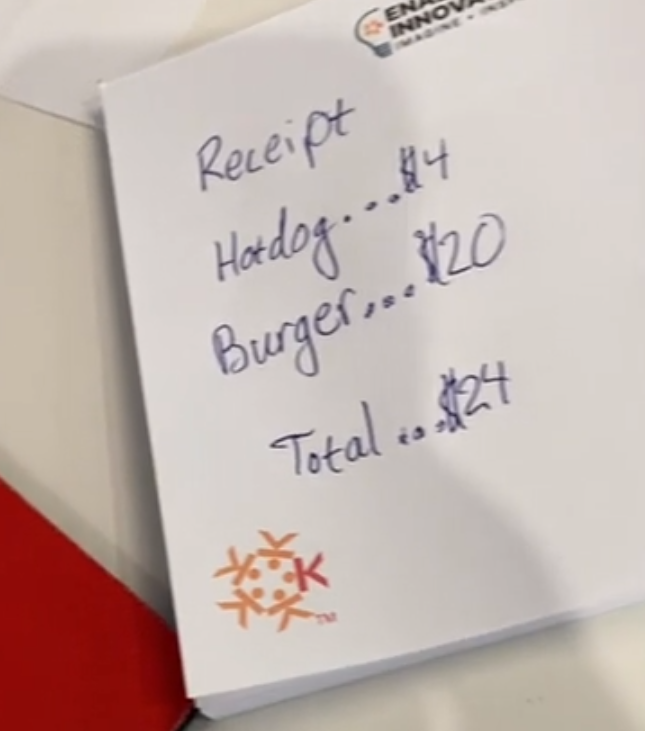 INNOVA
IMAGINE • INS
Receipt
Hotdog....$4
Burger....$20
Total ...$24
K
TM